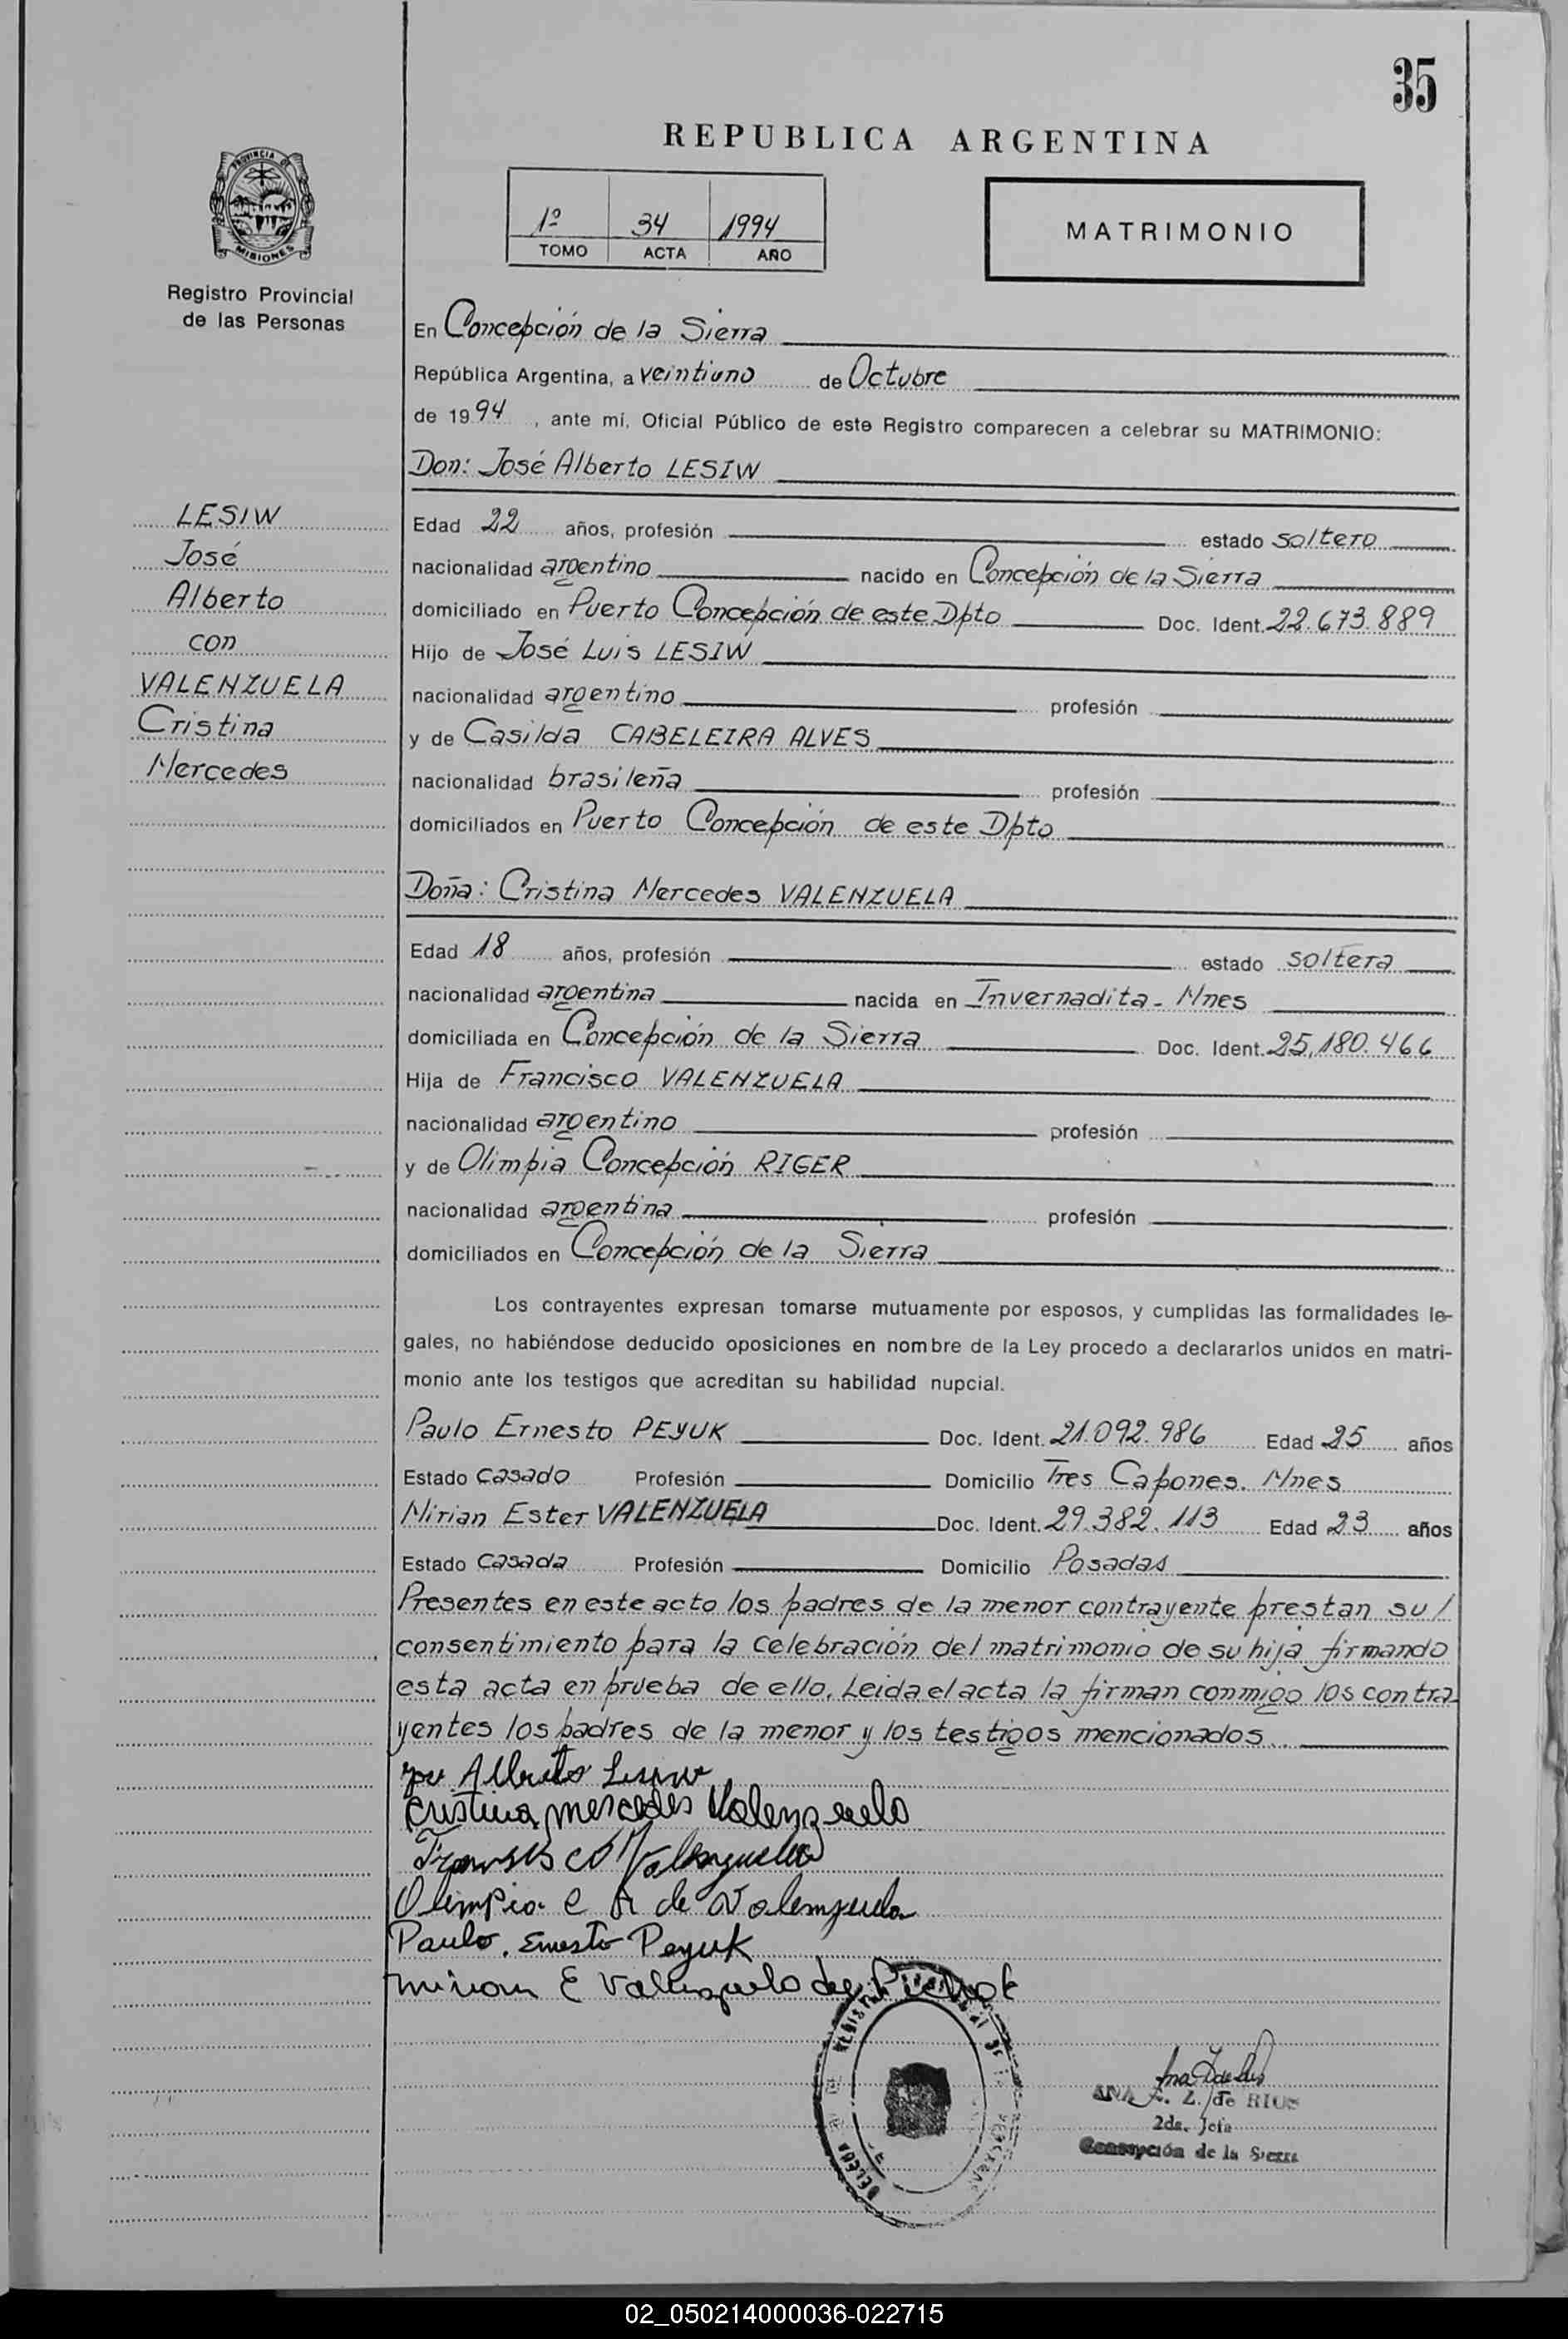 35
REPUBLICA ARGENTINA
PROVINCIA DE
MISIONES
Registro Provincial
de las Personas
1º 34 1994
TOMO ACTA AÑO
MATRIMONIO
En Concepción de la Sierra
República Argentina, a veintiuno de Octubre
de 1994, ante mí, Oficial Público de este Registro comparecen a celebrar su MATRIMONIO:
Don: José Alberto LESIW
LESIW
José
Alberto
con
VALENZUELA
Cristina
Mercedes
Edad 22 años, profesión estado soltero
nacionalidad argentino nacido en Concepción de la Sierra
domiciliado en Puerto Concepción de este Dpto Doc. Ident. 22.673.889
Hijo de José Luis LESIW
nacionalidad argentino profesión
y de Casilda CABELEIRA ALVES
nacionalidad brasileña profesión
domiciliados en Puerto Concepción de este Dpto
Doña: Cristina Mercedes VALENZUELA
Edad 18 años, profesión estado soltera
nacionalidad argentina nacida en Invernadita - Mnes
domiciliada en Concepción de la Sierra Doc. Ident. 25.180.466
Hija de Francisco VALENZUELA
nacionalidad argentino profesión
y de Olimpia Concepción RIGER
nacionalidad argentina profesión
domiciliados en Concepción de la Sierra
Los contrayentes expresan tomarse mutuamente por esposos, y cumplidas las formalidades le-
gales, no habiéndose deducido oposiciones en nombre de la Ley procedo a declararlos unidos en matri-
monio ante los testigos que acreditan su habilidad nupcial.
Paulo Ernesto PEYUK Doc. Ident. 21.092.986 Edad 25 años
Estado casado Profesión Domicilio Tres Capones. Mnes
Mirian Ester VALENZUELA Doc. Ident. 29.382.113 Edad 23 años
Estado casada Profesión Domicilio Posadas
Presentes en este acto los padres de la menor contrayente prestan su/
consentimiento para la celebración del matrimonio de su hija firmando
esta acta en prueba de ello. Leida el acta la firman conmigo los contra-
yentes los padres de la menor y los testigos mencionados.
Alberto Lesiw
Cristina Mercedes Valenzuela
Fransisco Valenzuela
Olimpia C R de Valenzuela
Paulo. Ernesto Peyuk
Miriam E Valenzuela de
ANA Z. de RIOS
2da. Jefa
Concepción de la Sierra
02_050214000036-022715